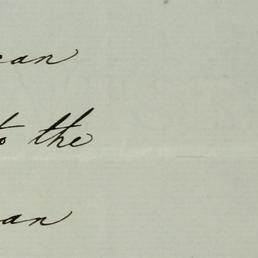 can
to the
an